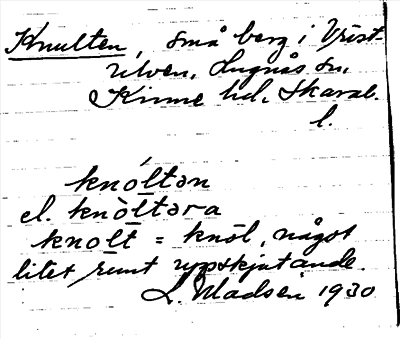 Knulten, små berg i Väst-
ulven, Lugnås sn,
Kinne hd, Skarab.
l.
knóltan
el. knòltəra
knolt = knöl, något
litet runt uppskjutande.
L. Madsen 1930